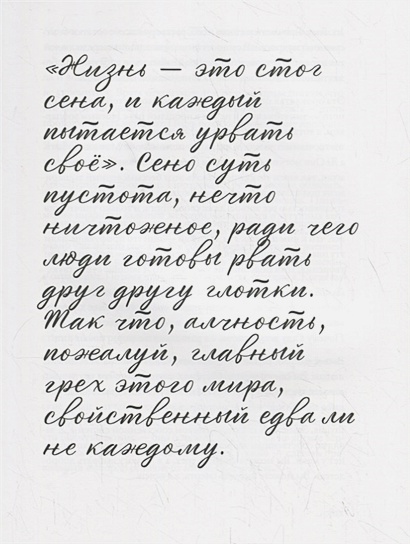 «Жизнь — это стог
сена, и каждый
пытается урвать
своё». Сено суть
пустота, нечто
ничтожное, ради чего
люди готовы рвать
друг другу глотки.
Так что, алчность,
пожалуй, главный
грех этого мира,
свойственный едва ли
не каждому.